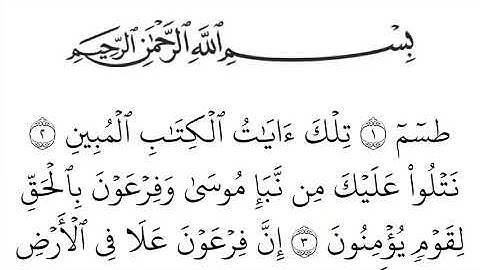 بِسْمِ ٱللَّهِ ٱلرَّحْمَٰنِ ٱلرَّحِيمِ
طسٓمٓ ۝١ تِلْكَ ءَايَٰتُ ٱلْكِتَٰبِ ٱلْمُبِينِ ۝٢
نَتْلُوا۟ عَلَيْكَ مِن نَّبَإِ مُوسَىٰ وَفِرْعَوْنَ بِٱلْحَقِّ
لِقَوْمٍ يُؤْمِنُونَ ۝٣ إِنَّ فِرْعَوْنَ عَلَا فِى ٱلْأَرْضِ